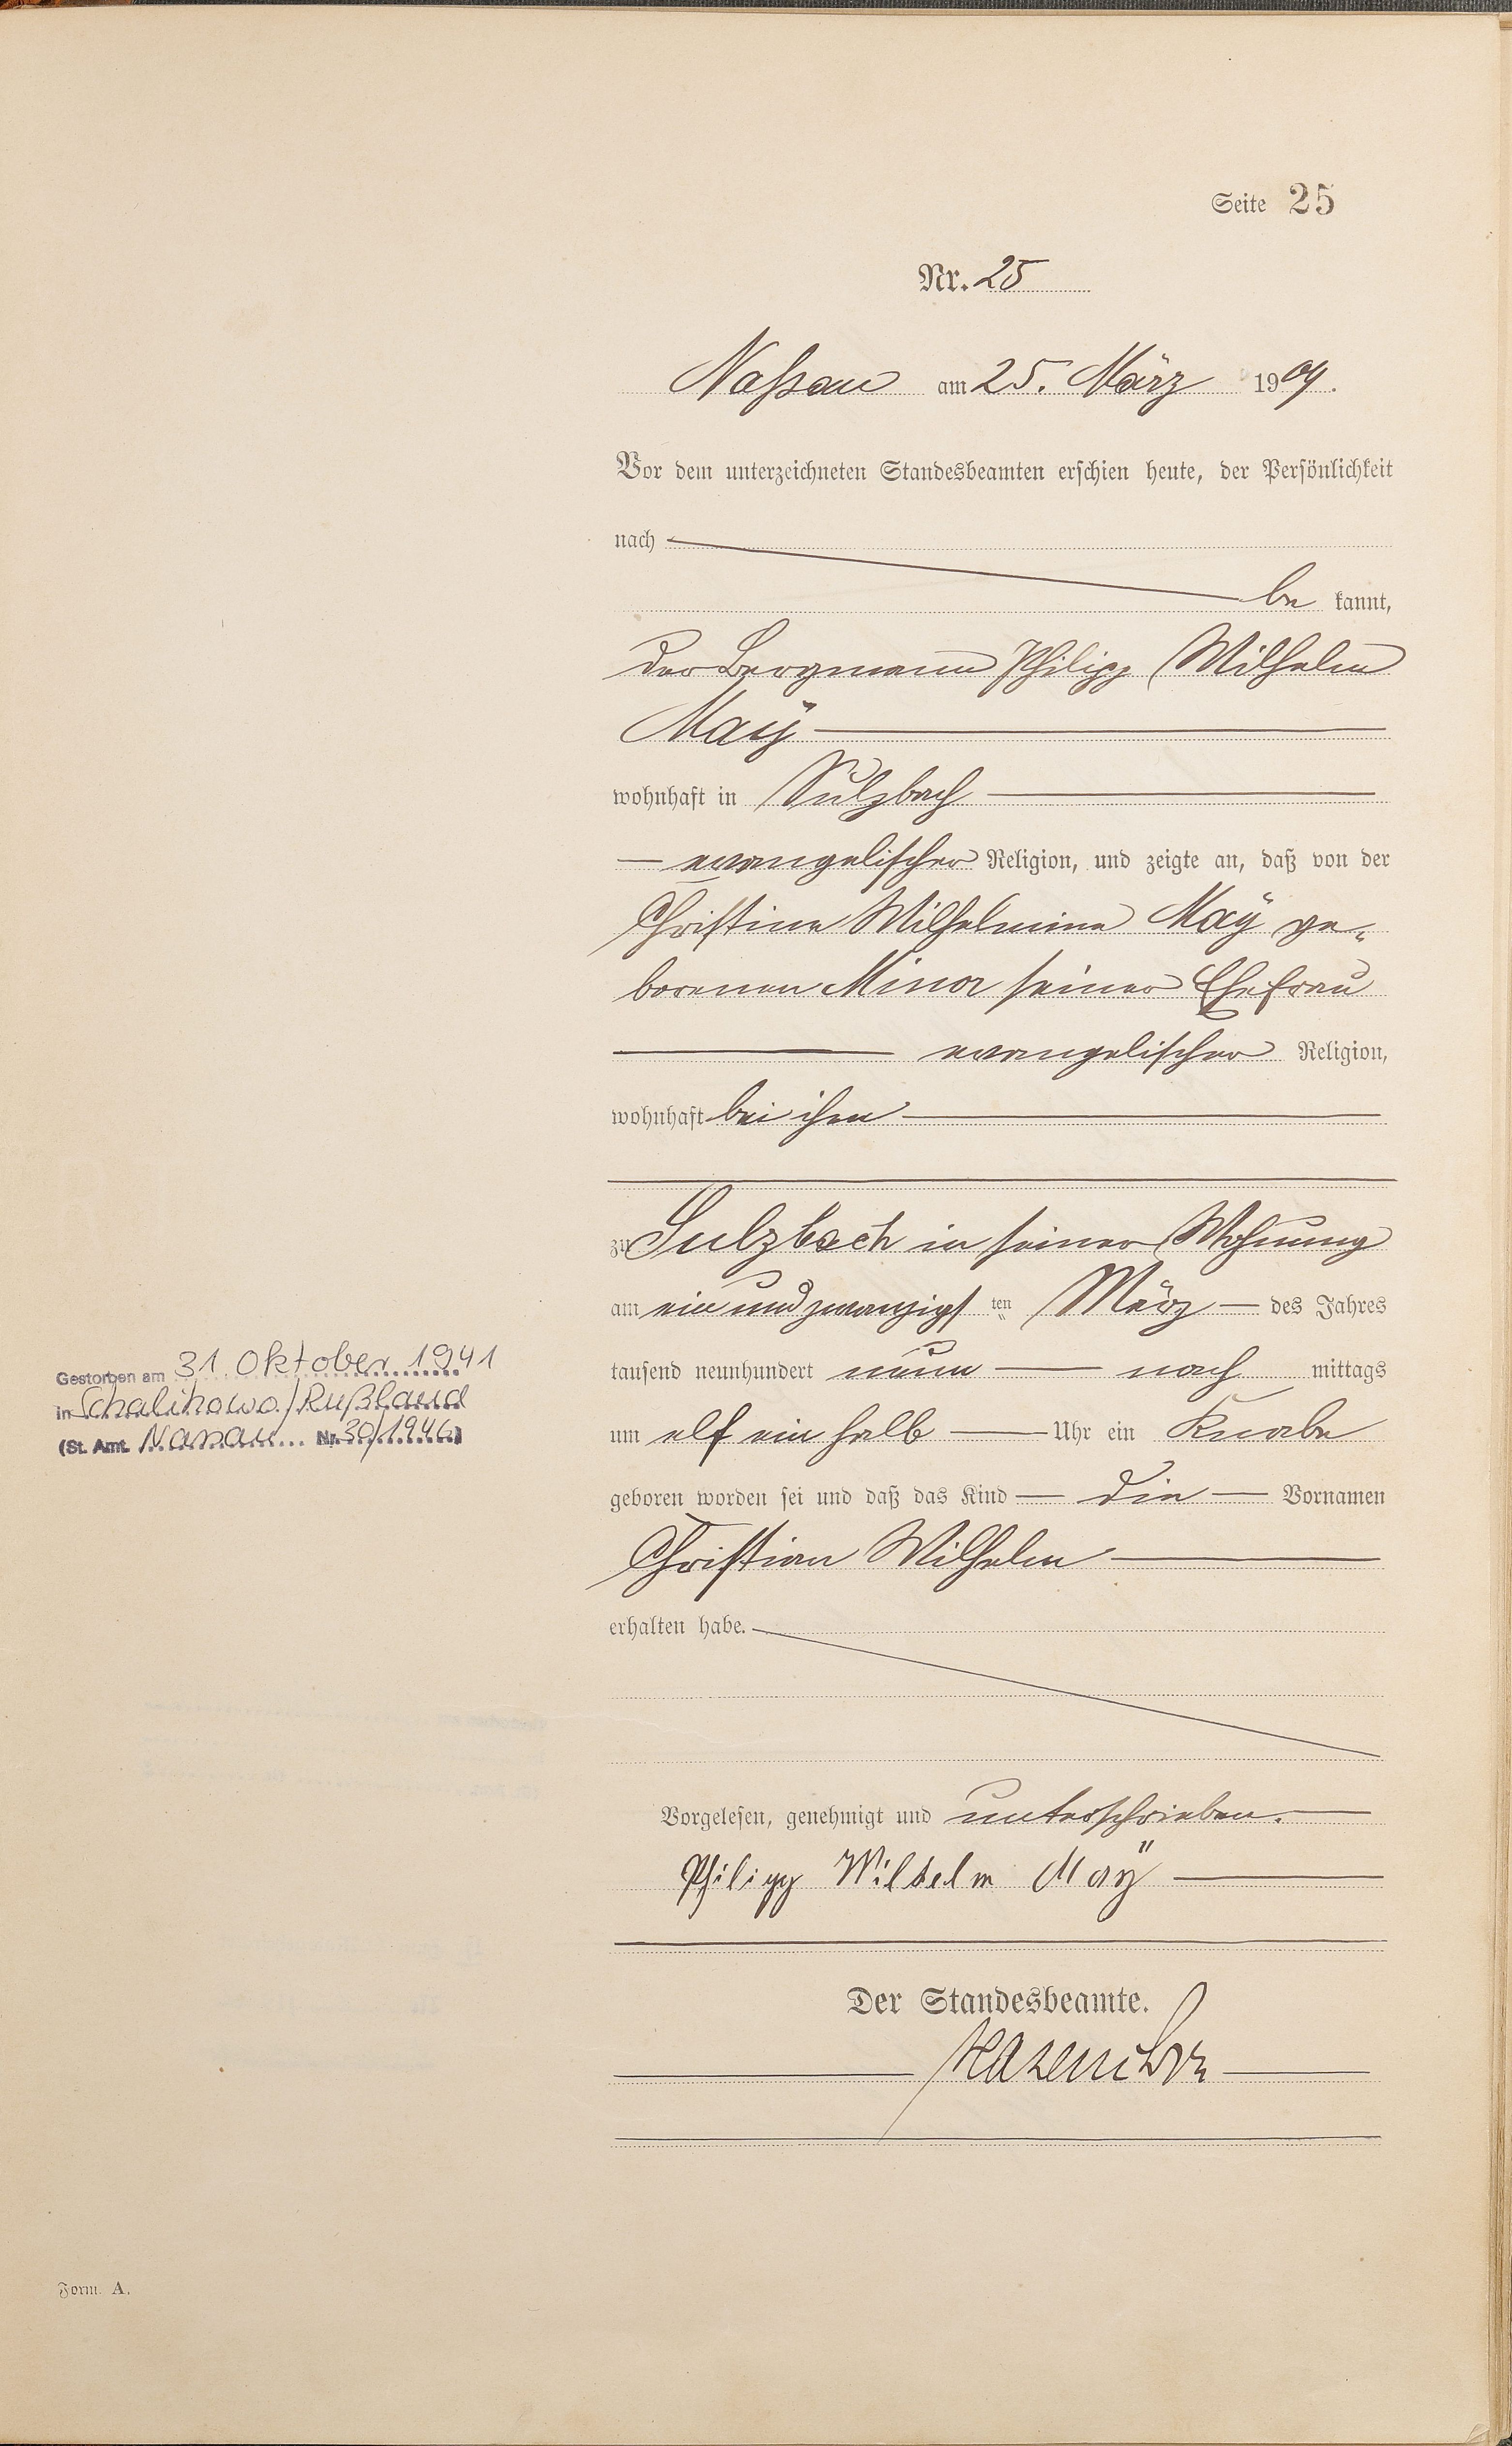 Seite 25
Nr. 25
Naßau am 25. März 1909.
Vor dem unterzeichneten Standesbeamten erschien heute, der Persönlichkeit
nach
be kannt,
der Bergmann Philipp Wilhelm
Maÿ
wohnhaft in Sulzbach
evangelischer Religion, und zeigte an, daß von der
Christine Wilhelmine Maÿ ge-
borenen Minor seiner Ehefrau
evangelischer Religion,
wohnhaft bei ihm
zu Sulzbach in seiner Wohnung
am ein und zwanzigsten März des Jahres
tausend neunhundert neun nach mittags
um elf ein halb Uhr ein Knabe
geboren worden sei und daß das Kind die Vornamen
Christian Wilhelm
erhalten habe.
Gestorben am 31. Oktober 1941
in Schalikowo/Rußland
(St. Amt Nassau Nr. 30/1946)
Vorgelesen, genehmigt und unterschrieben.
Philipp Wilhelm Maÿ
Der Standesbeamte.
Form. A.